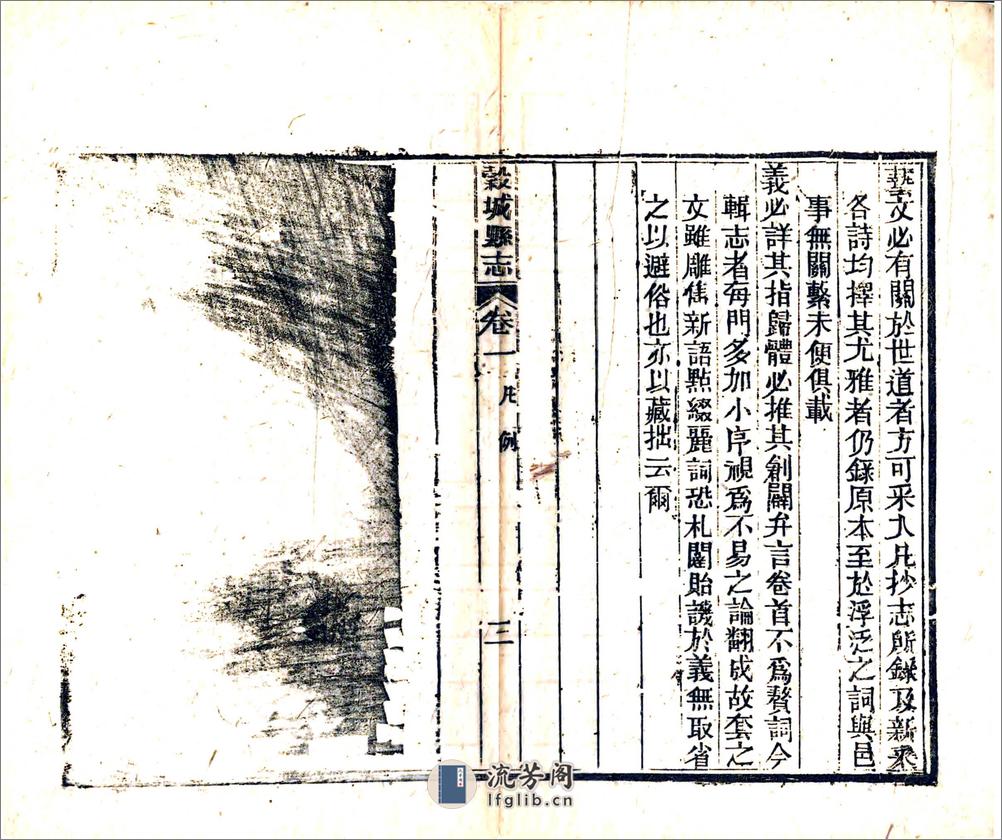 藝文必有關於世道者方可采入凡抄志所錄及新采
各詩均擇其尤雅者仍錄原本至於浮泛之詞與邑
事無關繫未便俱載
義必詳其指歸體必推其創闢弁言卷首不爲贅詞今
輯志者每門多加小序視爲不易之論翻成故套之
文雖雕雋新語點綴麗詞恐札闥貽譏於義無取省
之以避俗也亦以藏拙云爾
穀城縣志 卷一 凡例 三
流芳阁
lfglib.cn